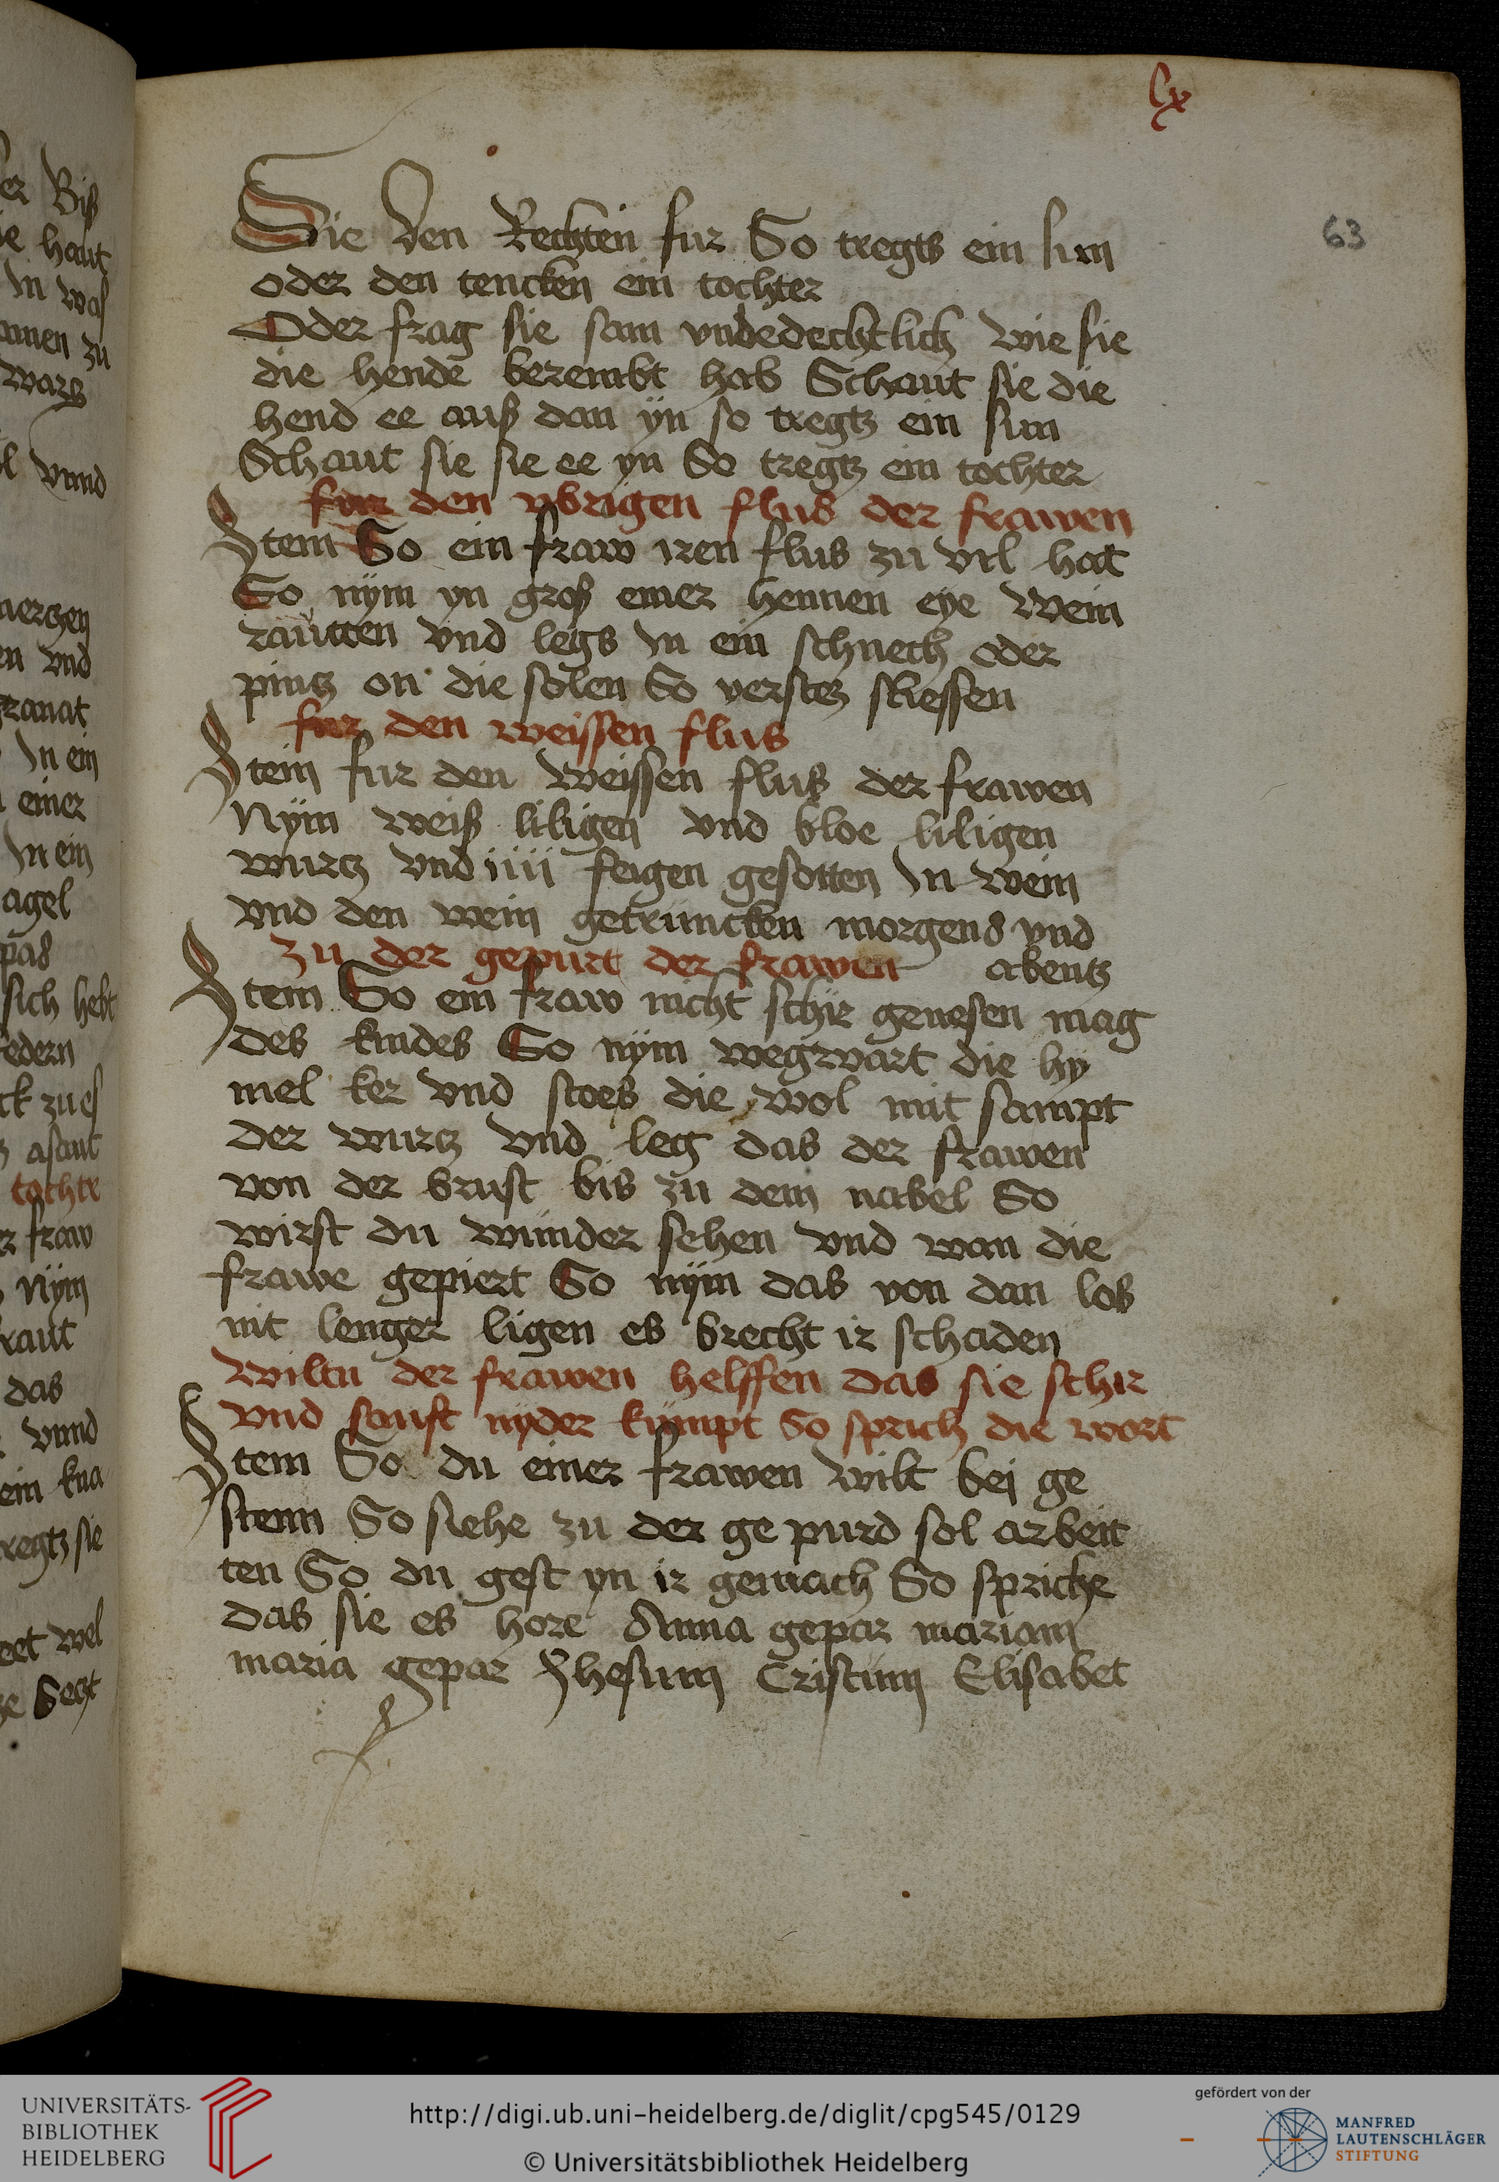 lx
63
Sie den Rechten fur So tregts ein sun
oder den tencken ein tochter
Oder frag sie sam vnbedechtlich wie sie
die hende berembt hab Schaut sie die
hend ee auß dan yn so tregtz ein sun
Schaut sie sie ee yn So tregtz ein tochter
fur den vbrigen flus der frawen
Item So ein fraw iren flus zu vil hat
So nym yn groß einer hennen eye Wein
rautten vnd legs In ein schuech oder
pintz on die solen So verstetz fliessen
fur den weissen flus
Item fur den Weissen fluß der frawen
Nym weiß liligen vnd bloe liligen
wurtz vnd iiii feigen gesotten In wein
vnd den wein getruncken morgens vnd
abentz
zu der gepurt der frawen
Item So ein fraw nicht schir genesen mag
des kindes So nym wegwart die hy
mel ker vnd stoes die wol mit sampt
der wurtz vnd leg das der frawen
von der brust bis zu dem nabel So
wirst du wunder sehen vnd wan die
frawe gepiert So nym das von dan los
nit lenger ligen es brecht ir schaden
Wiltu der frawen helffen das sie schir
vnd sanft nyder kumpt So sprich die wort
Item So du einer frawen wilt bej ge
stenn So siehe zu der ge purd sol arbeit
ten So du gest yn ir gemach So spriche
das sie es hore Anna gepar mariam
maria gepar Jhesum Cristum Elisabet
er Biß
ie haut
In was
zu
vnnd
vnd
granat
In ein
einer
In ein
agel
sich hebt
edern
tochte
fraw
Nym
kraut
das
vnnd
ein kna
tregtz sie
wel
UNIVERSITÄTS-
BIBLIOTHEK
HEIDELBERG
http://digi.ub.uni-heidelberg.de/diglit/cpg545/0129
© Universitätsbibliothek Heidelberg
gefördert von der
MANFRED
LAUTENSCHLÄGER
STIFTUNG